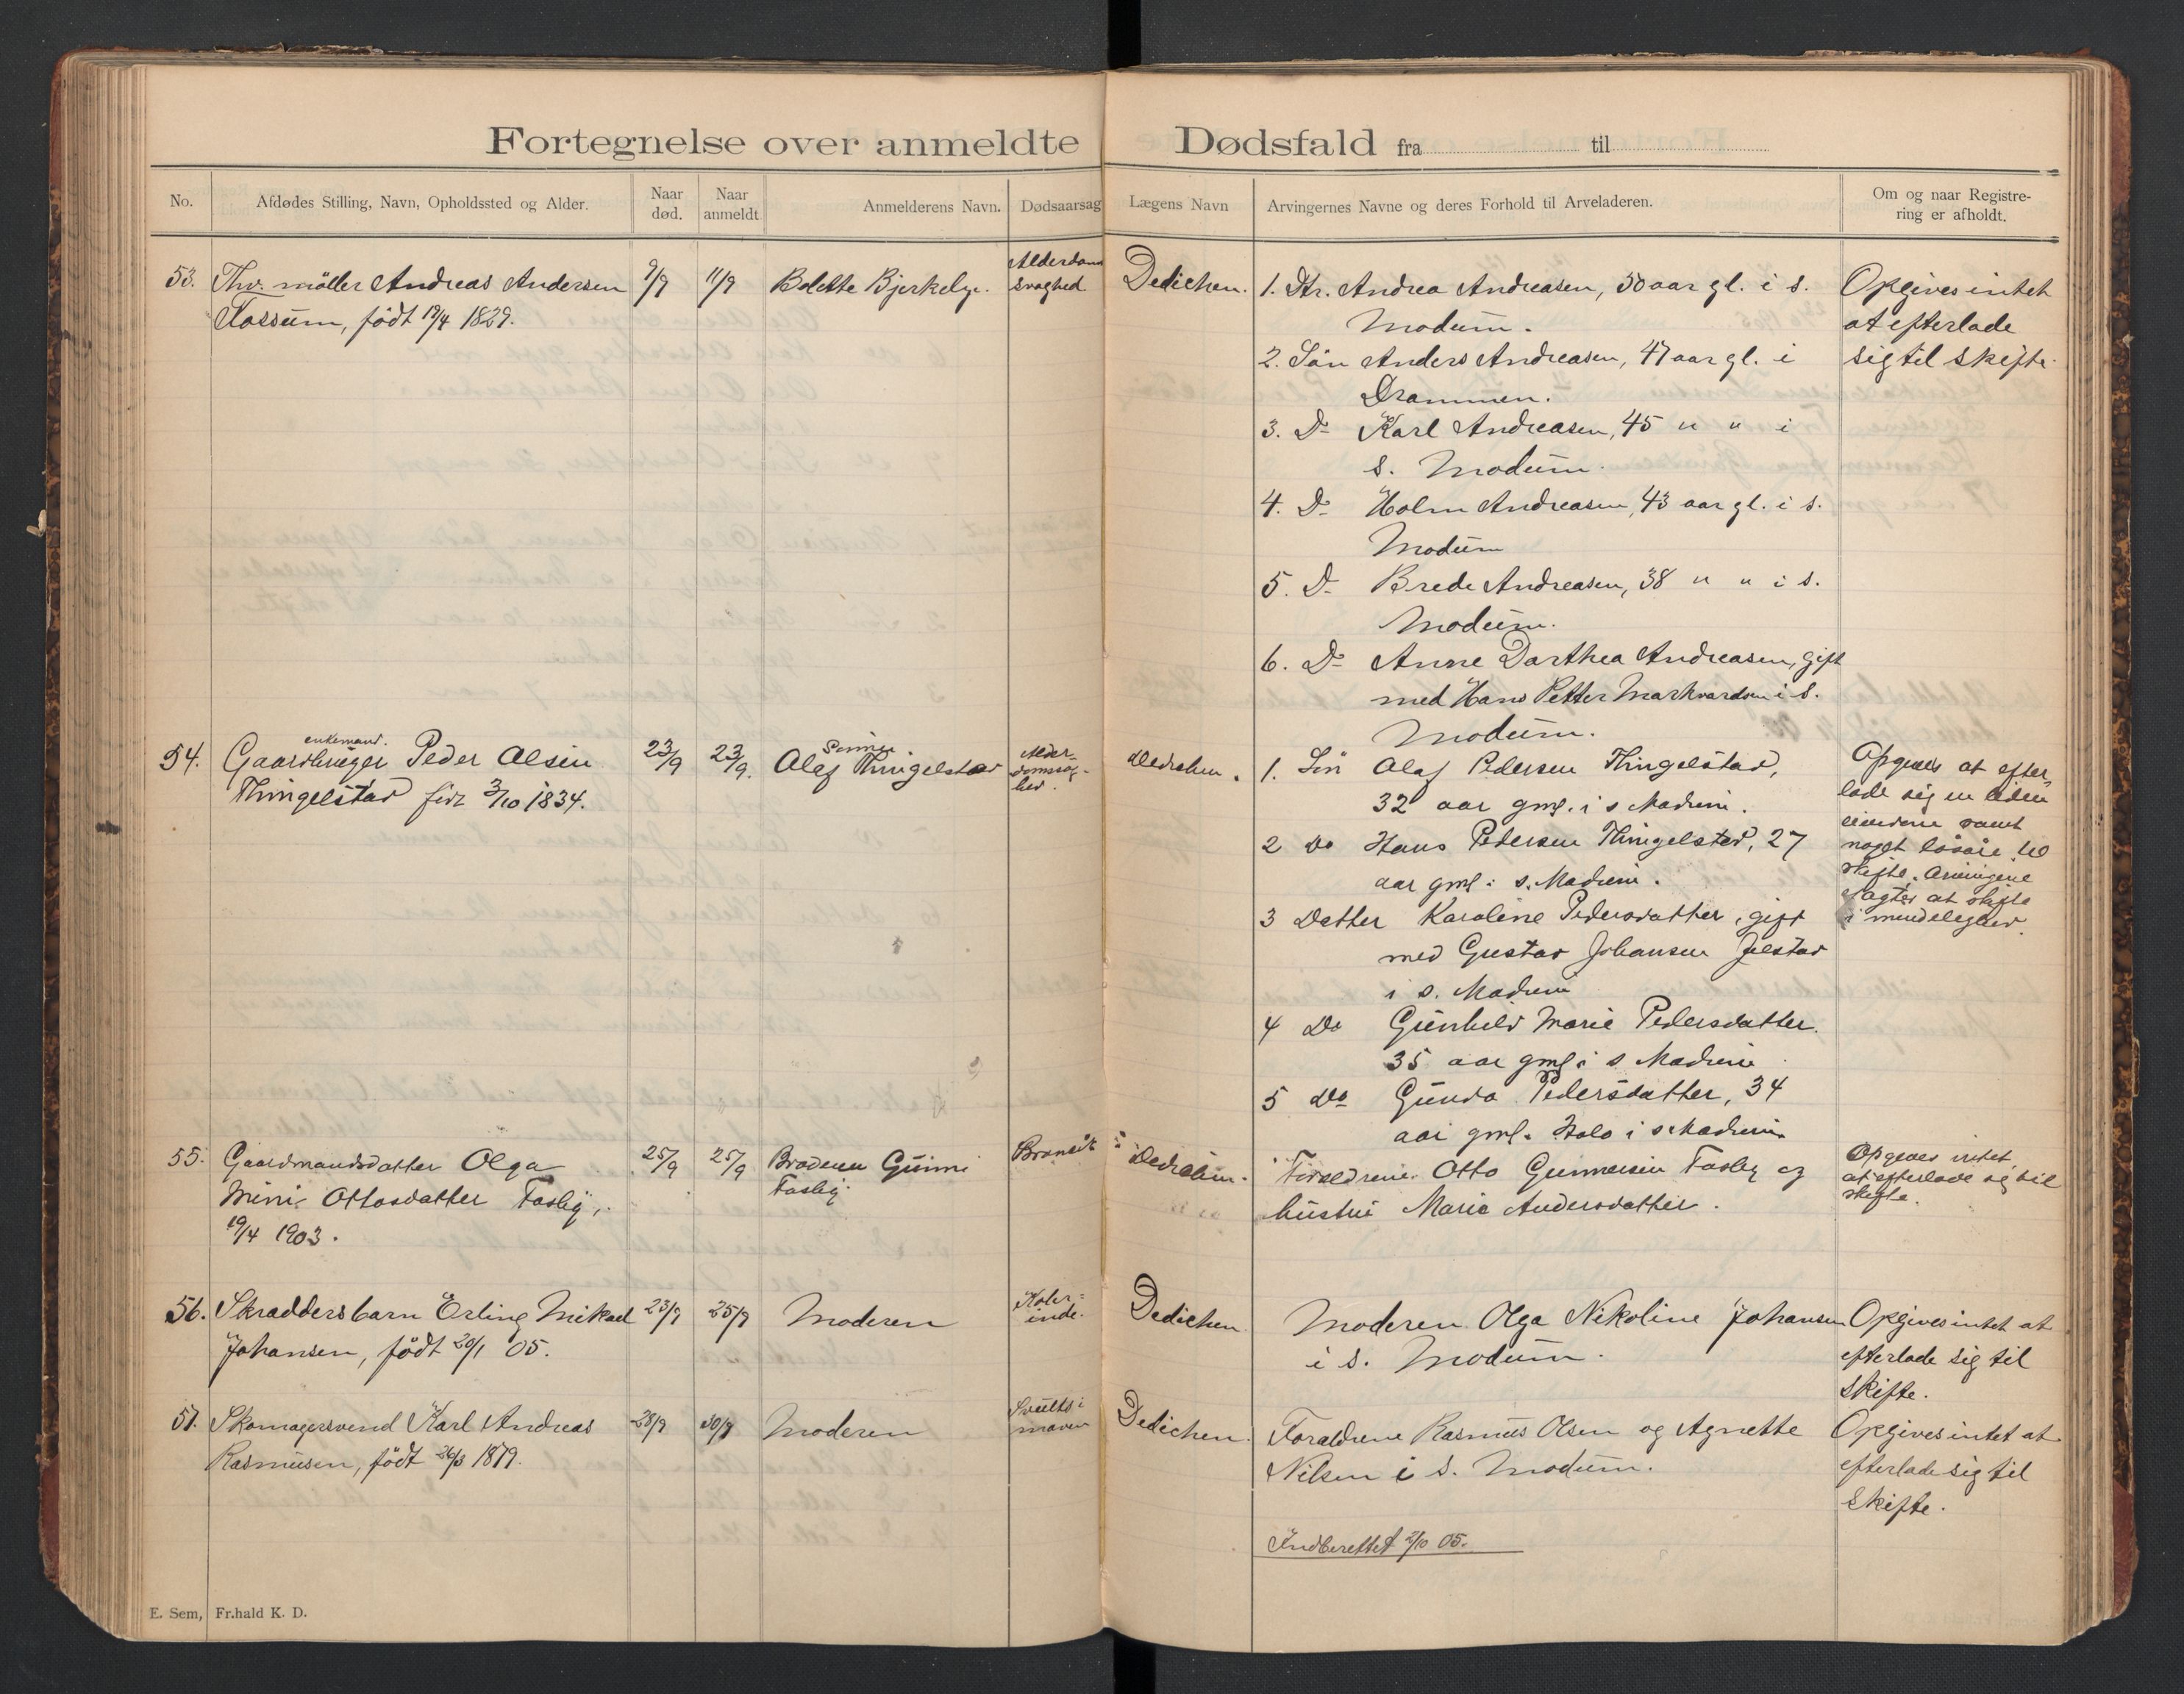 Fortegnelse over anmeldte Dødsfald fra til
No. Afdødes Stilling, Navn, Opholdssted og Alder. Naar død. Naar anmeldt Anmelderens Navn. Dødsaarsag Lægens Navn Arvingernes Navne og deres Forhold til Arveladeren. Om og naar Registrering er afholdt.
53. Thv. møller Andreas Andersen 9/9 11/9 Bolette Bjerkelye. Alderdoms
Fossum, født 19/4 1829. svaghed Dedichen.
1. Dtr. Andrea Andreasen, 50 aar gl. i s.
Modum.
2. Søn Anders Andreasen, 47 aar gl. i
Drammen.
3. Do Karl Andreasen, 45 " " i
s. Modum.
4. Do Holm Andreasen, 43 aar gl. i s.
Modum
5. Do Brede Andreasen, 38 " " i s.
Modum.
6. Do Anne Dorthea Andreasen, gift
med Hans Petter Markvardsen i s.
Modum.
Opgives intet
at efterlade
sig til skifte.
54. enkemand.
Gaardbruger Peder Olsen 23/9 23/9. Sønnen
Thingelstad født 3/10 1834. Olaf Thingelstad
Alder-
domssvag-
hed.
Dedichen.
1. Søn Olaf Pedersen Thingelstad,
32 aar gml. i s Modum.
2 Do Hans Pedersen Thingelstad, 27
aar gml i s. Modum.
3 Datter Karoline Pedersdatter, gift
med Gustav Johansen Jelstad
i s. Modum
4 Do Gunhild Marie Pedersdatter.
35 aar gml i s Modum
5 Do Gunda Pedersdatter, 34
aar gml. Holo i s Modum
Opgives at efter-
lade sig en liden
eiendom samt
noget løsøre til
skifte. Arvingene
agter at skifte
i mindelighed.
55. Gaardmandsdatter Olga 25/9 25/9 Broderen Gunni Dedichen.
Mini Ottosdatter Fosby, Fosby.
19/4 1903.
Forældrene Otto Gunnersen Fosby og
hustru Marie Andersdatter.
Opgives intet
at efterlade sig til
skifte.
56. Skradders barn Erling Mikael 23/9 25/9 Moderen Koler-
inde. Dedichen
Johansen, født 20/1 05.
Moderen Olga Nikoline Johansen
i s. Modum.
Opgives intet at
efterlade sig til
skifte.
57. Skomagersvend Karl Andreas 28/9 30/9 Moderen Svulst i
maven Dedichen.
Rasmusen, født 26/3 1879.
Forældrene Rasmus Olsen og Agnette
Nilsen i s. Modum.
Opgives intet at
efterlade sig til
skifte.
Indberettet 2/10 05.
E. Sem, Fr.hald K. D.